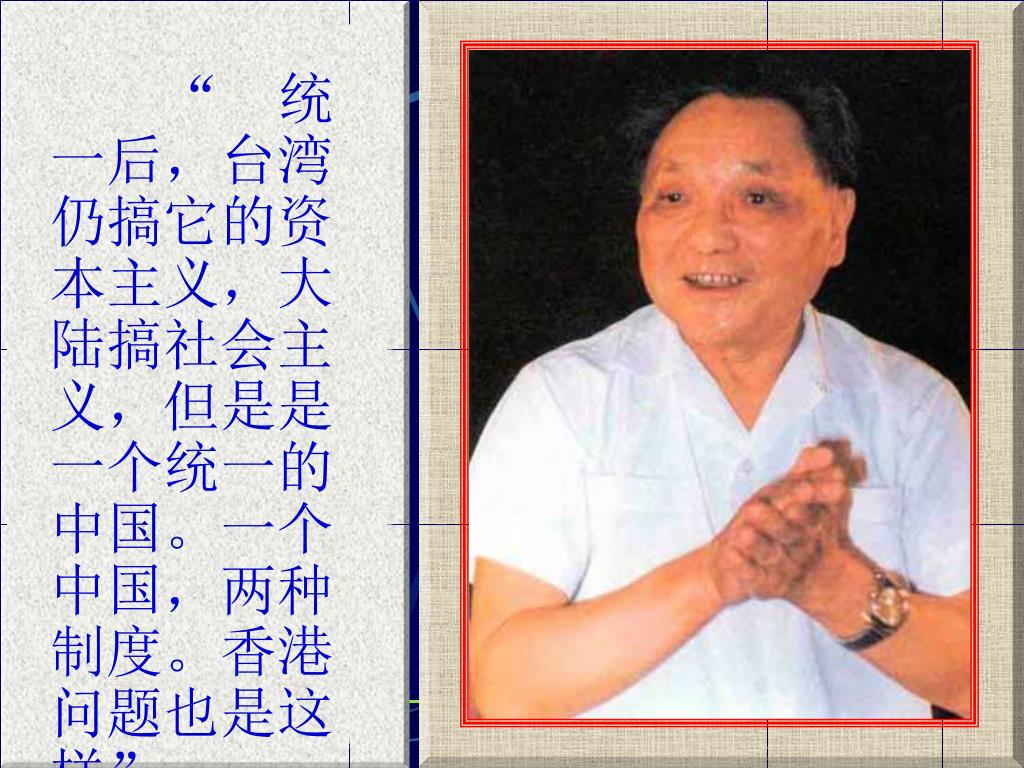 “ 统
一后，台湾
仍搞它的资
本主义，大
陆搞社会主
义，但是是
一个统一的
中国。一个
中国，两种
制度。香港
问题也是这
样”